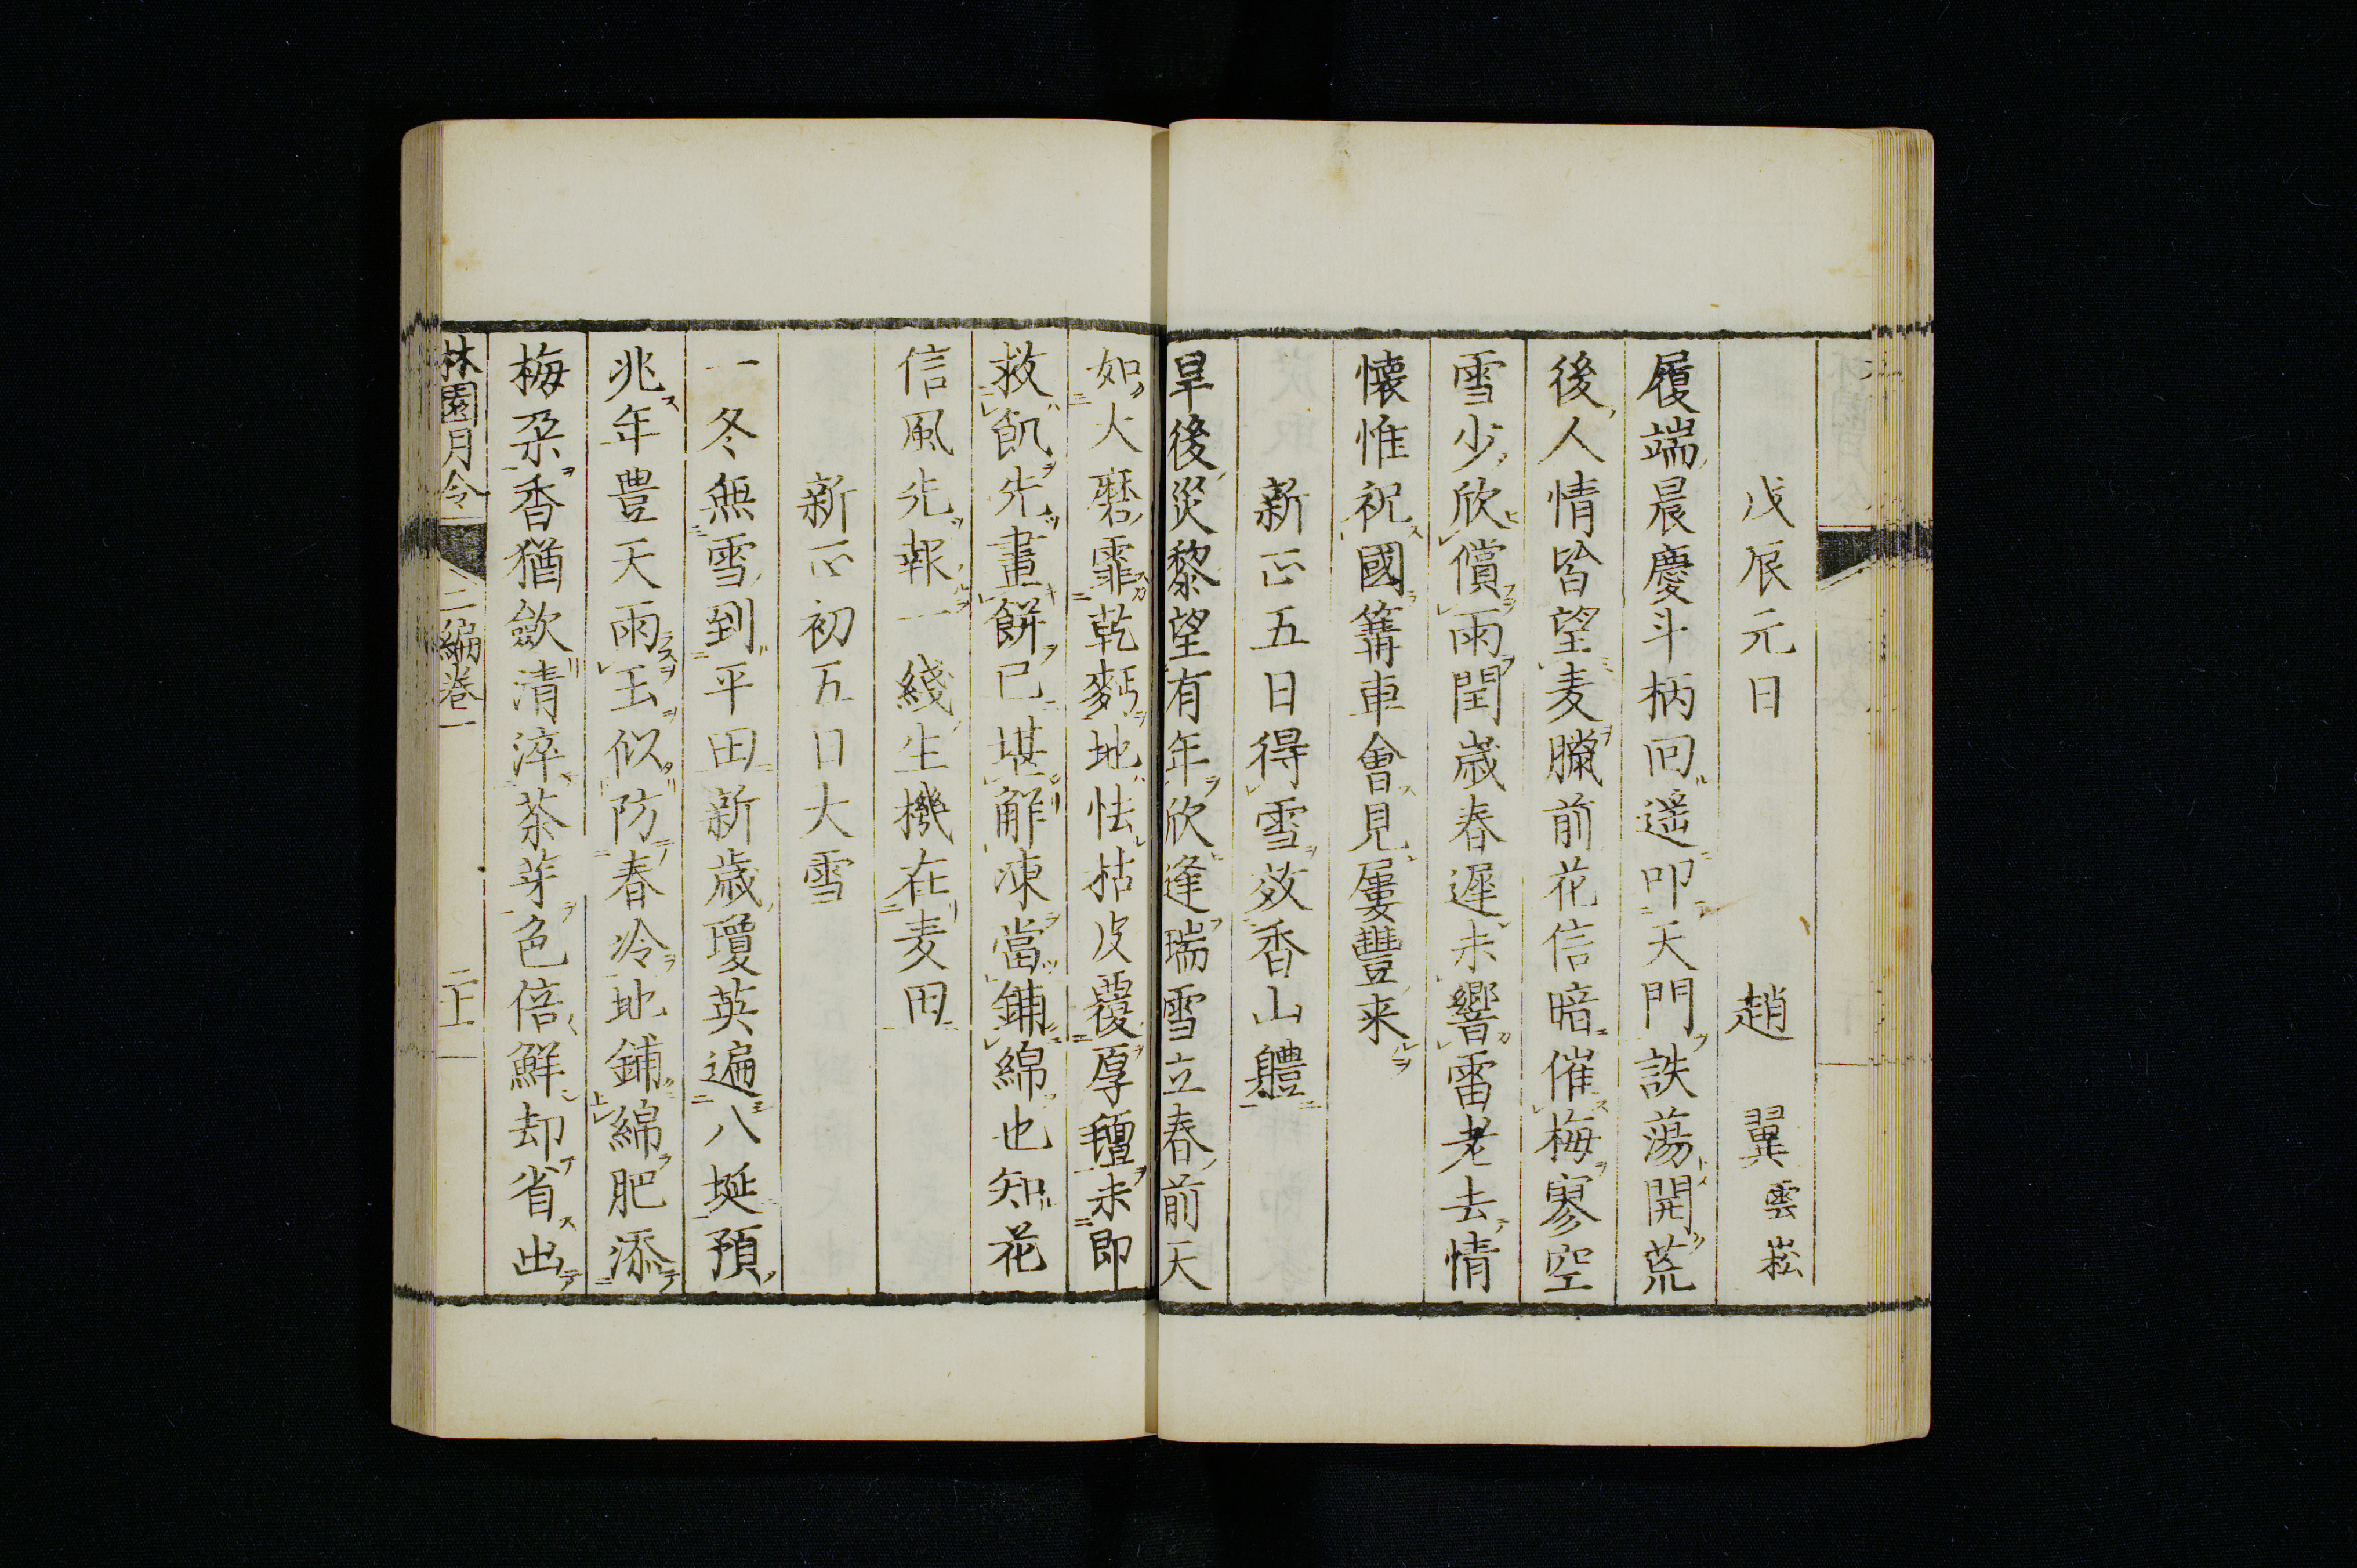 戊辰元日　　趙　翼雲崧
履端晨慶斗柄回遥叩天門詄蕩開荒
後人情皆望麦臘前花信暗催梅寥空
雪少欣償雨閏歳春遲未響雷老去情
懐惟祝國篝車會見屢豐来
新正五日得雪效香山軆
旱後災黎望有年欣逢瑞雪立春前天
如大磨霏乾麪地怯枯皮覆厚氊未即
救飢先畫餅已堪解凍當鋪綿也知花
信風先報一綫生機在麦田
新正初五日大雪
一冬無雪到平田新歳瓊英遍八埏預
兆年豊天雨玉似防春冷地鋪綿肥添
梅朶香猶斂清淬茶芽色倍鮮却省出
林園月令　二編巻一　二上